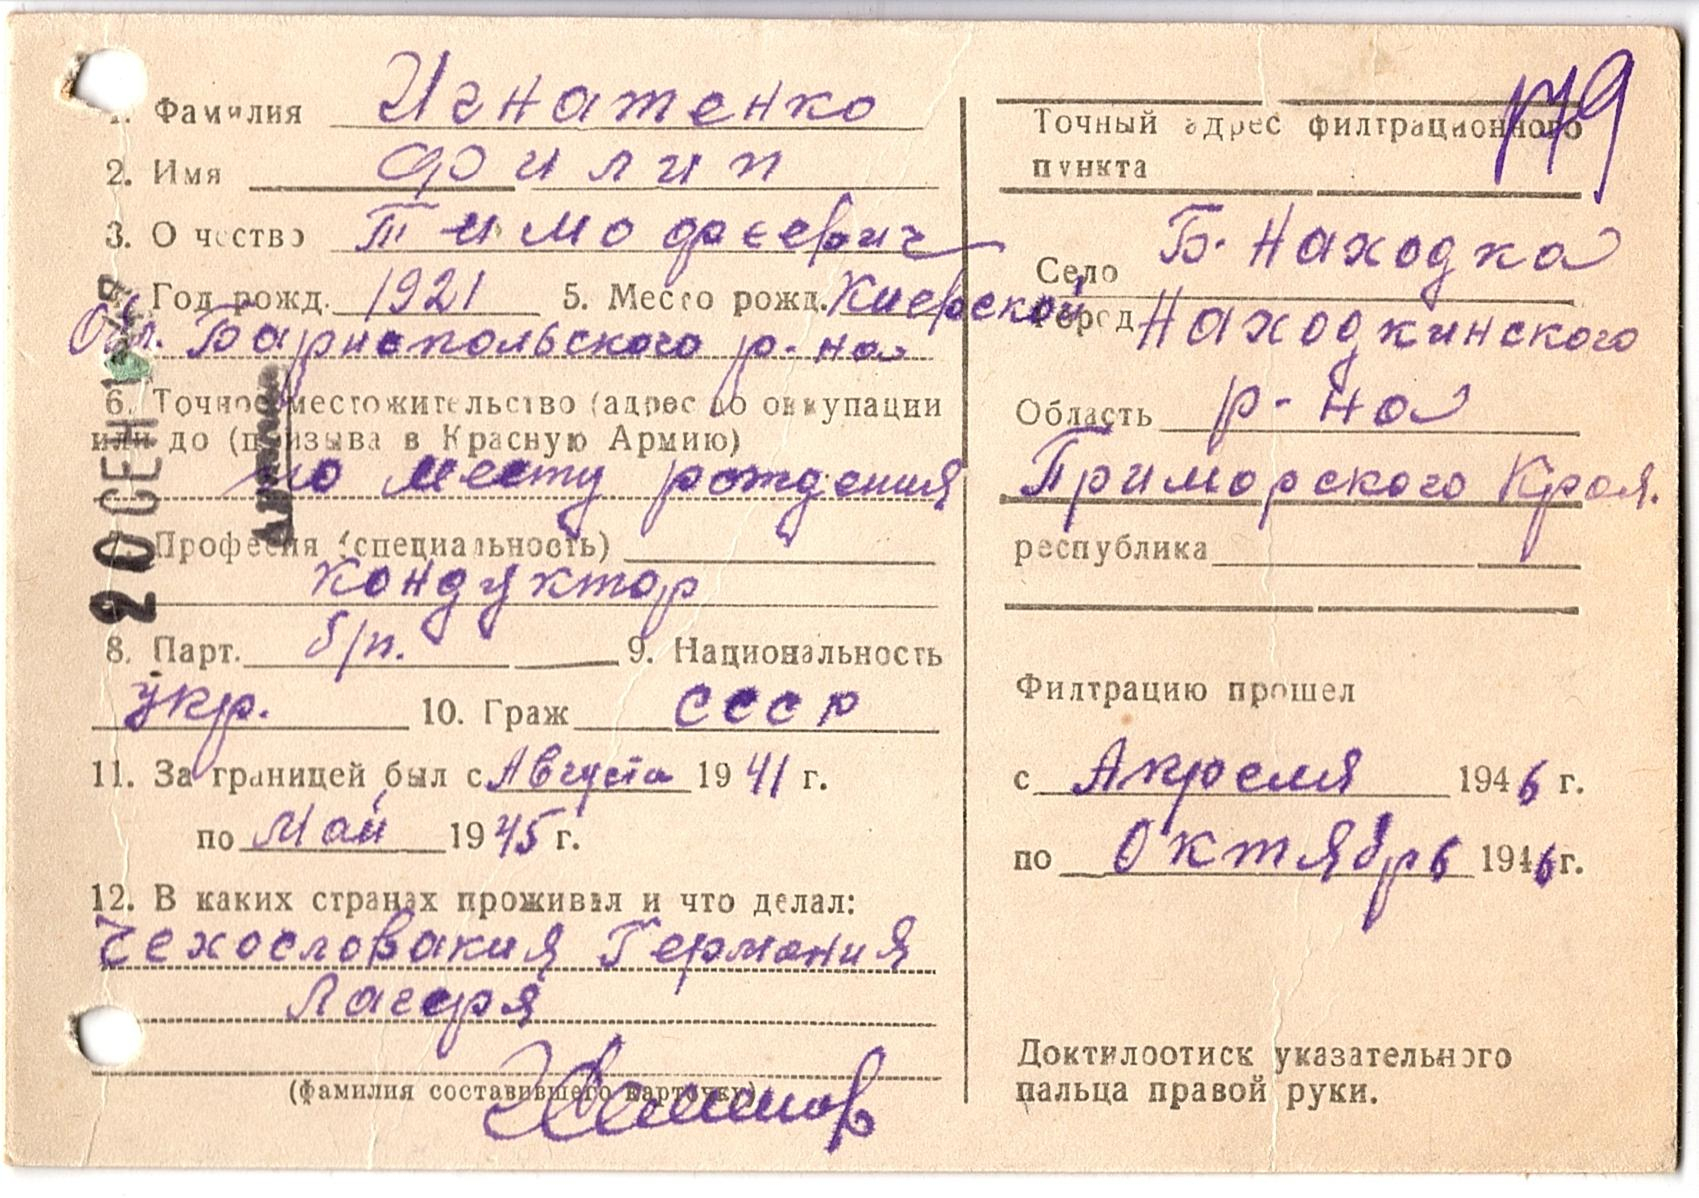 1. Фамилия Игнатенко
2. Имя Филип
3. Отчество Тимофеевич
Год рожд. 1921 5. Место рожд. Киевской
Обл. Барнопольского р-на
6. Точное местожительство (адрес до оккупации
или до (призыва в Красную Армию)
по месту рождения
7. Професия (специальность)
кондуктор
8. Парт. б/п. 9. Национальность
укр. 10. Граж СССР
11. За границей был с Августа 1941 г.
по Май 1945 г.
12. В каких странах проживал и что делал:
Чехословакия Германия
Лагеря
(фамилия составившего карточку)
20 СЕН
179
Точный адрес филтрационного
пункта
Село Б. Находка
Город Находкинского
Область р-на
Приморского Края.
республика
Филтрацию прошел
с Апреля 1946 г.
по Октябрь 1946 г.
Доктилоотиск указательного
пальца правой руки.